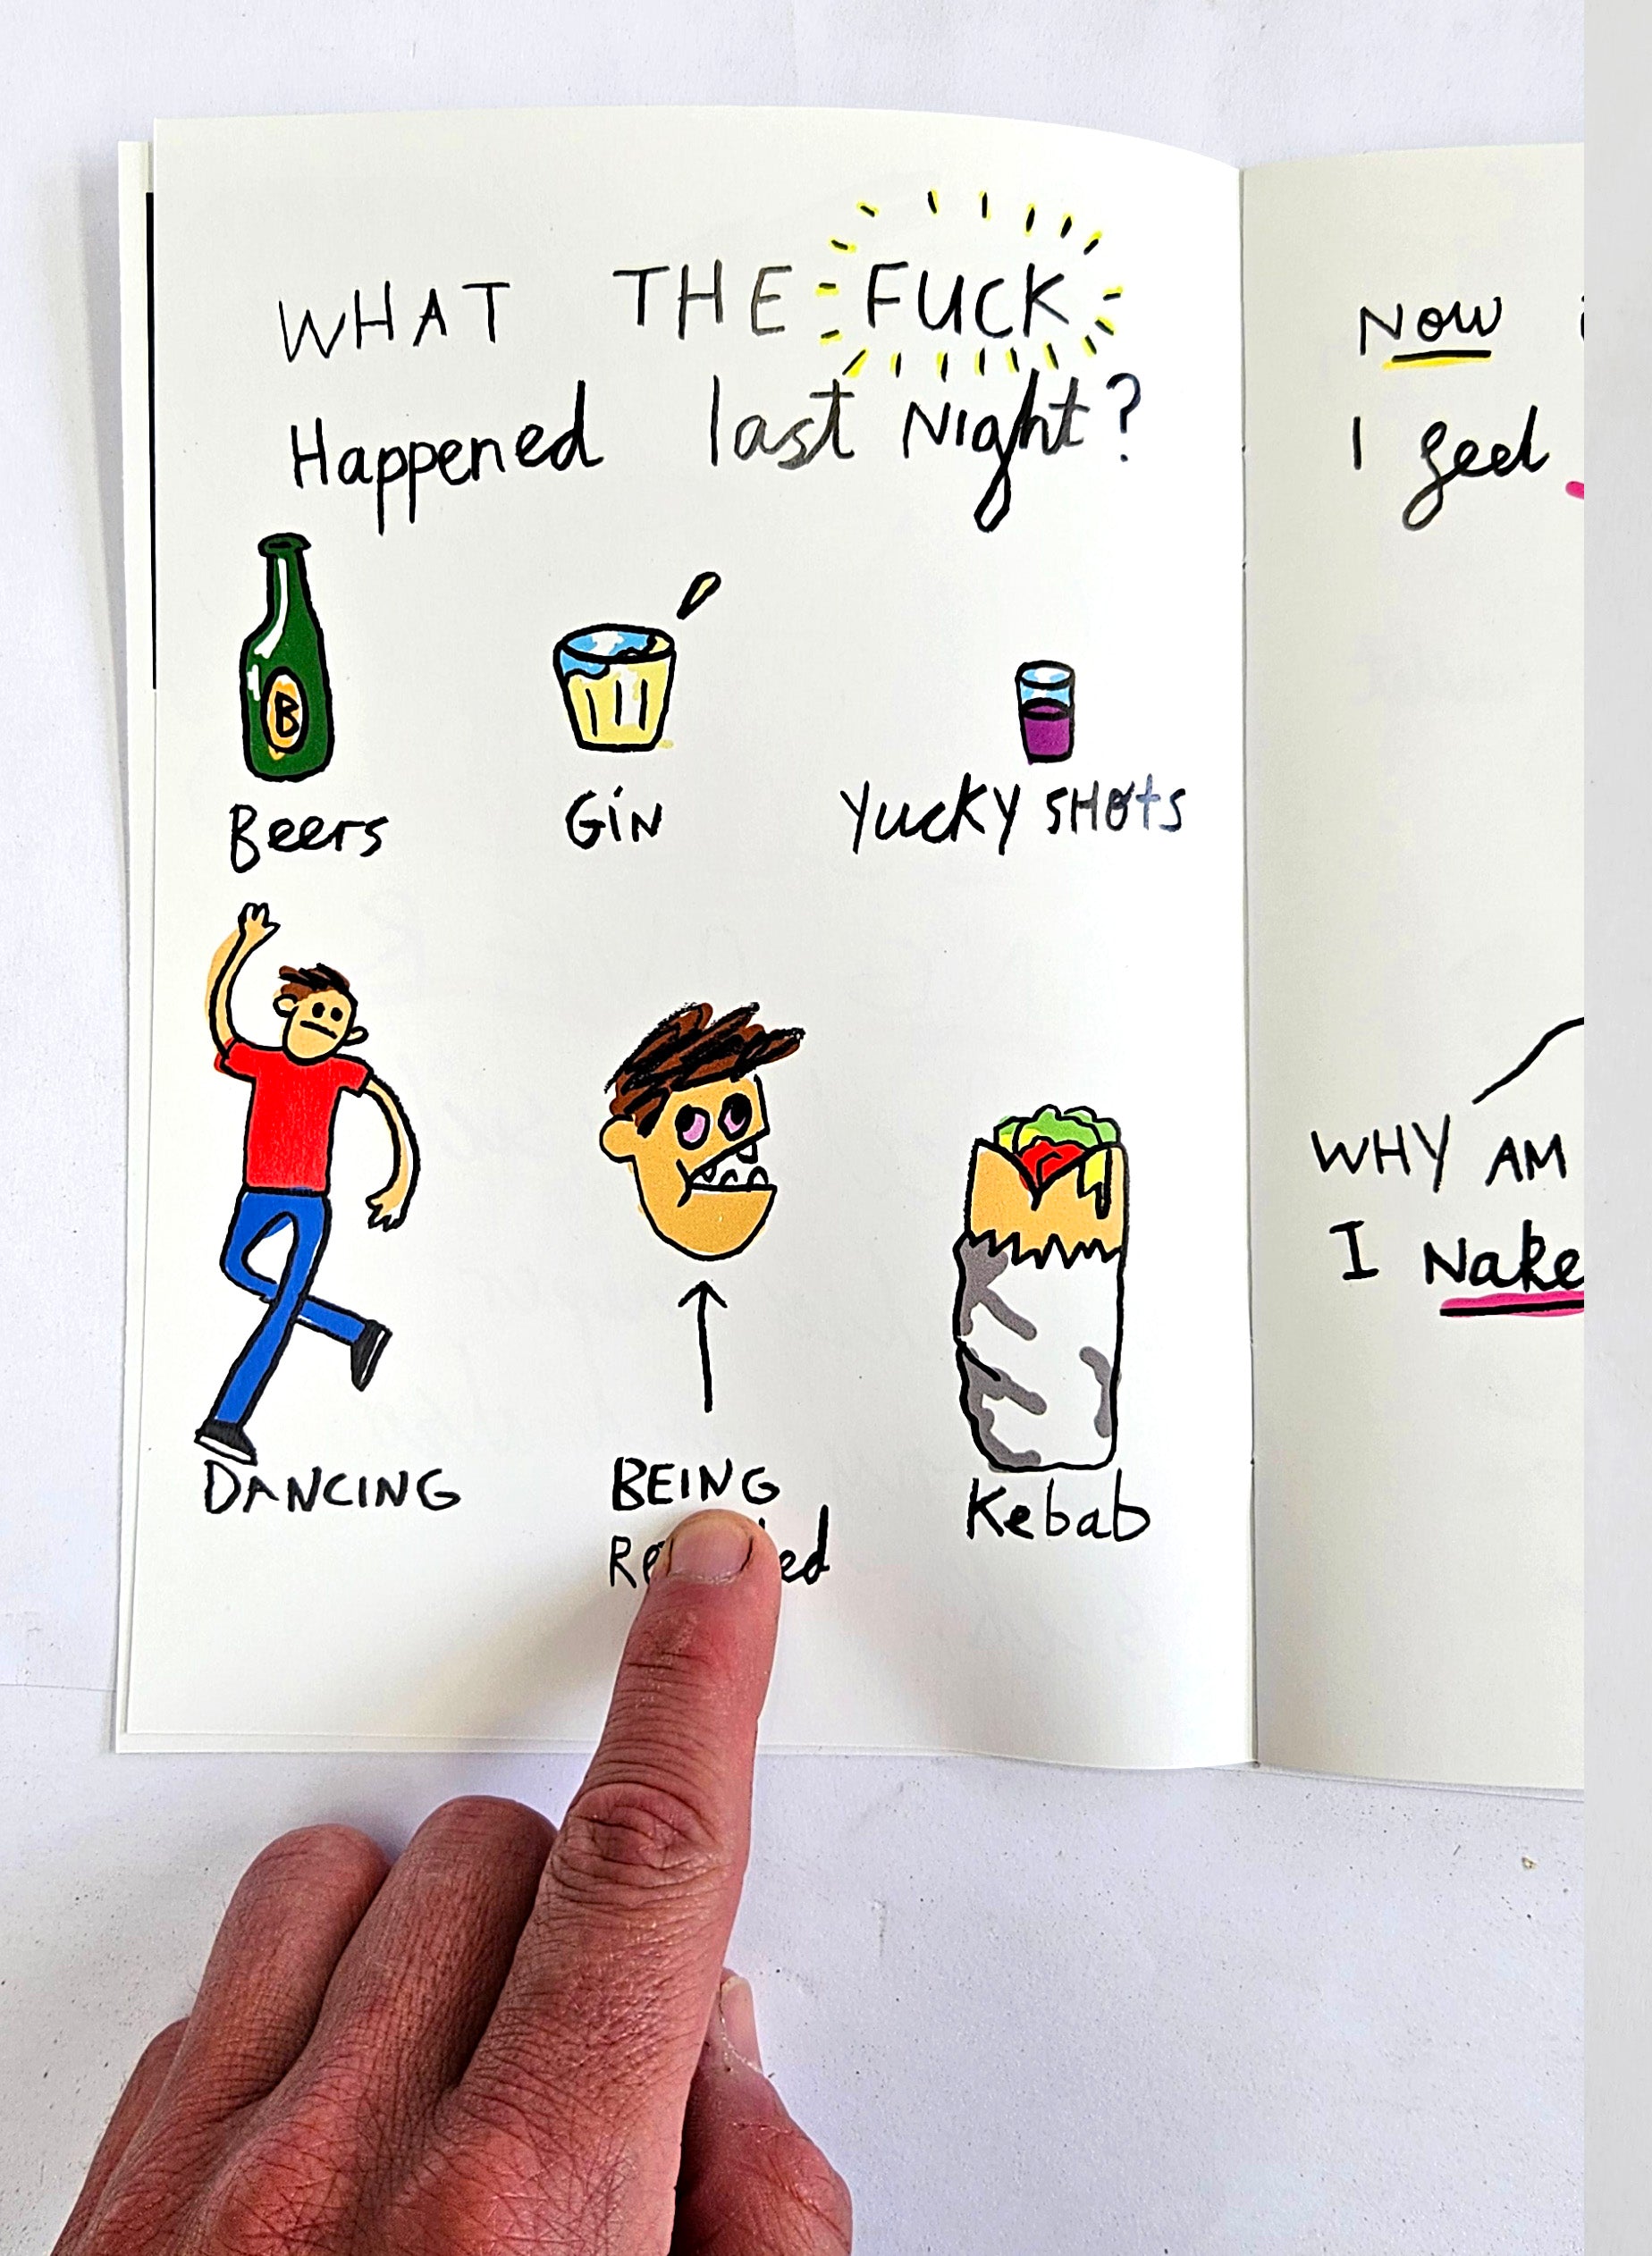 WHAT THE FUCK
Happened last Night?
B
Beers
Gin
Yucky SHOTS
DANCING
BEING
Kebab
NOW
I feel
WHY AM
I